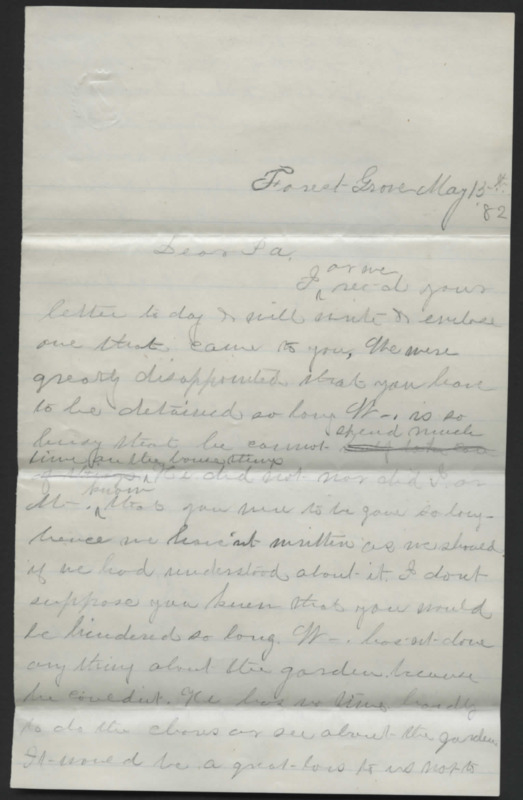 Forest Grove May 13th.
'82
Dear Pa.
or we
I ^ rec'd your
letter to day & will write & enclose
one that came to you, We were
greatly disappointed that you have
to be detained so long W-. is so
busy that he cannot spend much
time on the house things
He did not nor did I or
M-. ^ know that you were to be gone so long-
hence we have'nt written as we should
if we had understood about it. I dont
suppose you knew that you would
be hindered so long. W-. has'nt done
any thing about the garden because
he could'nt. He has no time hardly
to do the chores or see about the garden
It would be a great loss to us not to